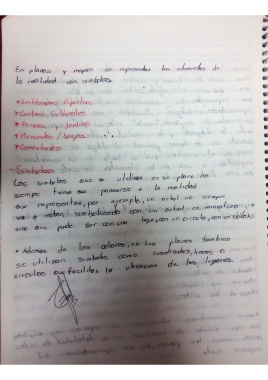 En planos y mapas se representan los elementos de
la realidad con simbolos.
* Instituciones Deportivas
* Centros Culturales
* Parques y Jardines
* Mercados /
* Comunitarios
- Simbolos
Los simbolos que se utilizan en los planos no
siempre tiene que parecerse a la realidad
que representan, por ejemplo, un arbol no siempre
va a estar simbolizado con un arbol en miniatura,
sino que puede ser con una hoja, con un circulo, con un
* Ademas de los colores, en los planos tambien
se utilizan simbolos como cuadrados, lineas o
circulos que facilitan la ubicacion de los lugares.